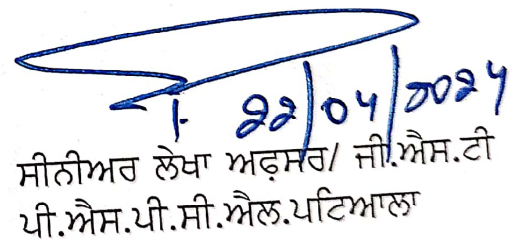 22/04/2024
ਸੀਨੀਅਰ ਲੇਖਾ ਅਫ਼ਸਰ/ ਜੀ.ਐਸ.ਟੀ
ਪੀ.ਐਸ.ਪੀ.ਸੀ.ਐਲ.ਪਟਿਆਲਾ